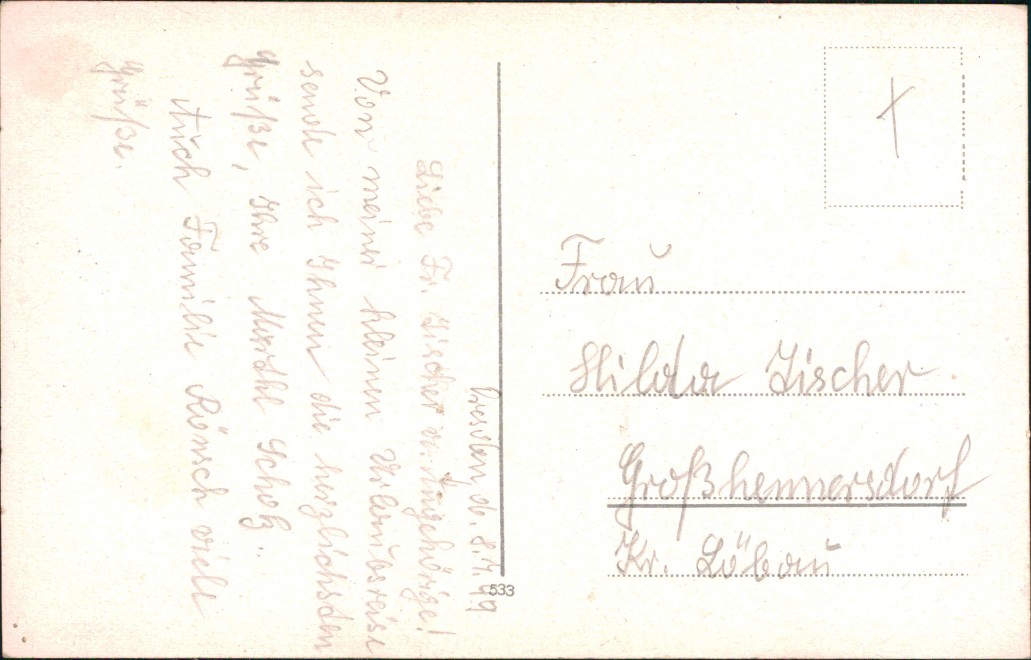 Dresden, d. 8.7.49
Liebe Fr. Zischer u. Angehörige!
Von meiner kleinen Urlaubsreise
sende ich Ihnen die herzlichsten
Grüße, Ihre Scholz.
Auch Familie Rönsch viele
Grüße.
Frau
Hilda Zischer
Großhennersdorf
Kr. Löbau
533